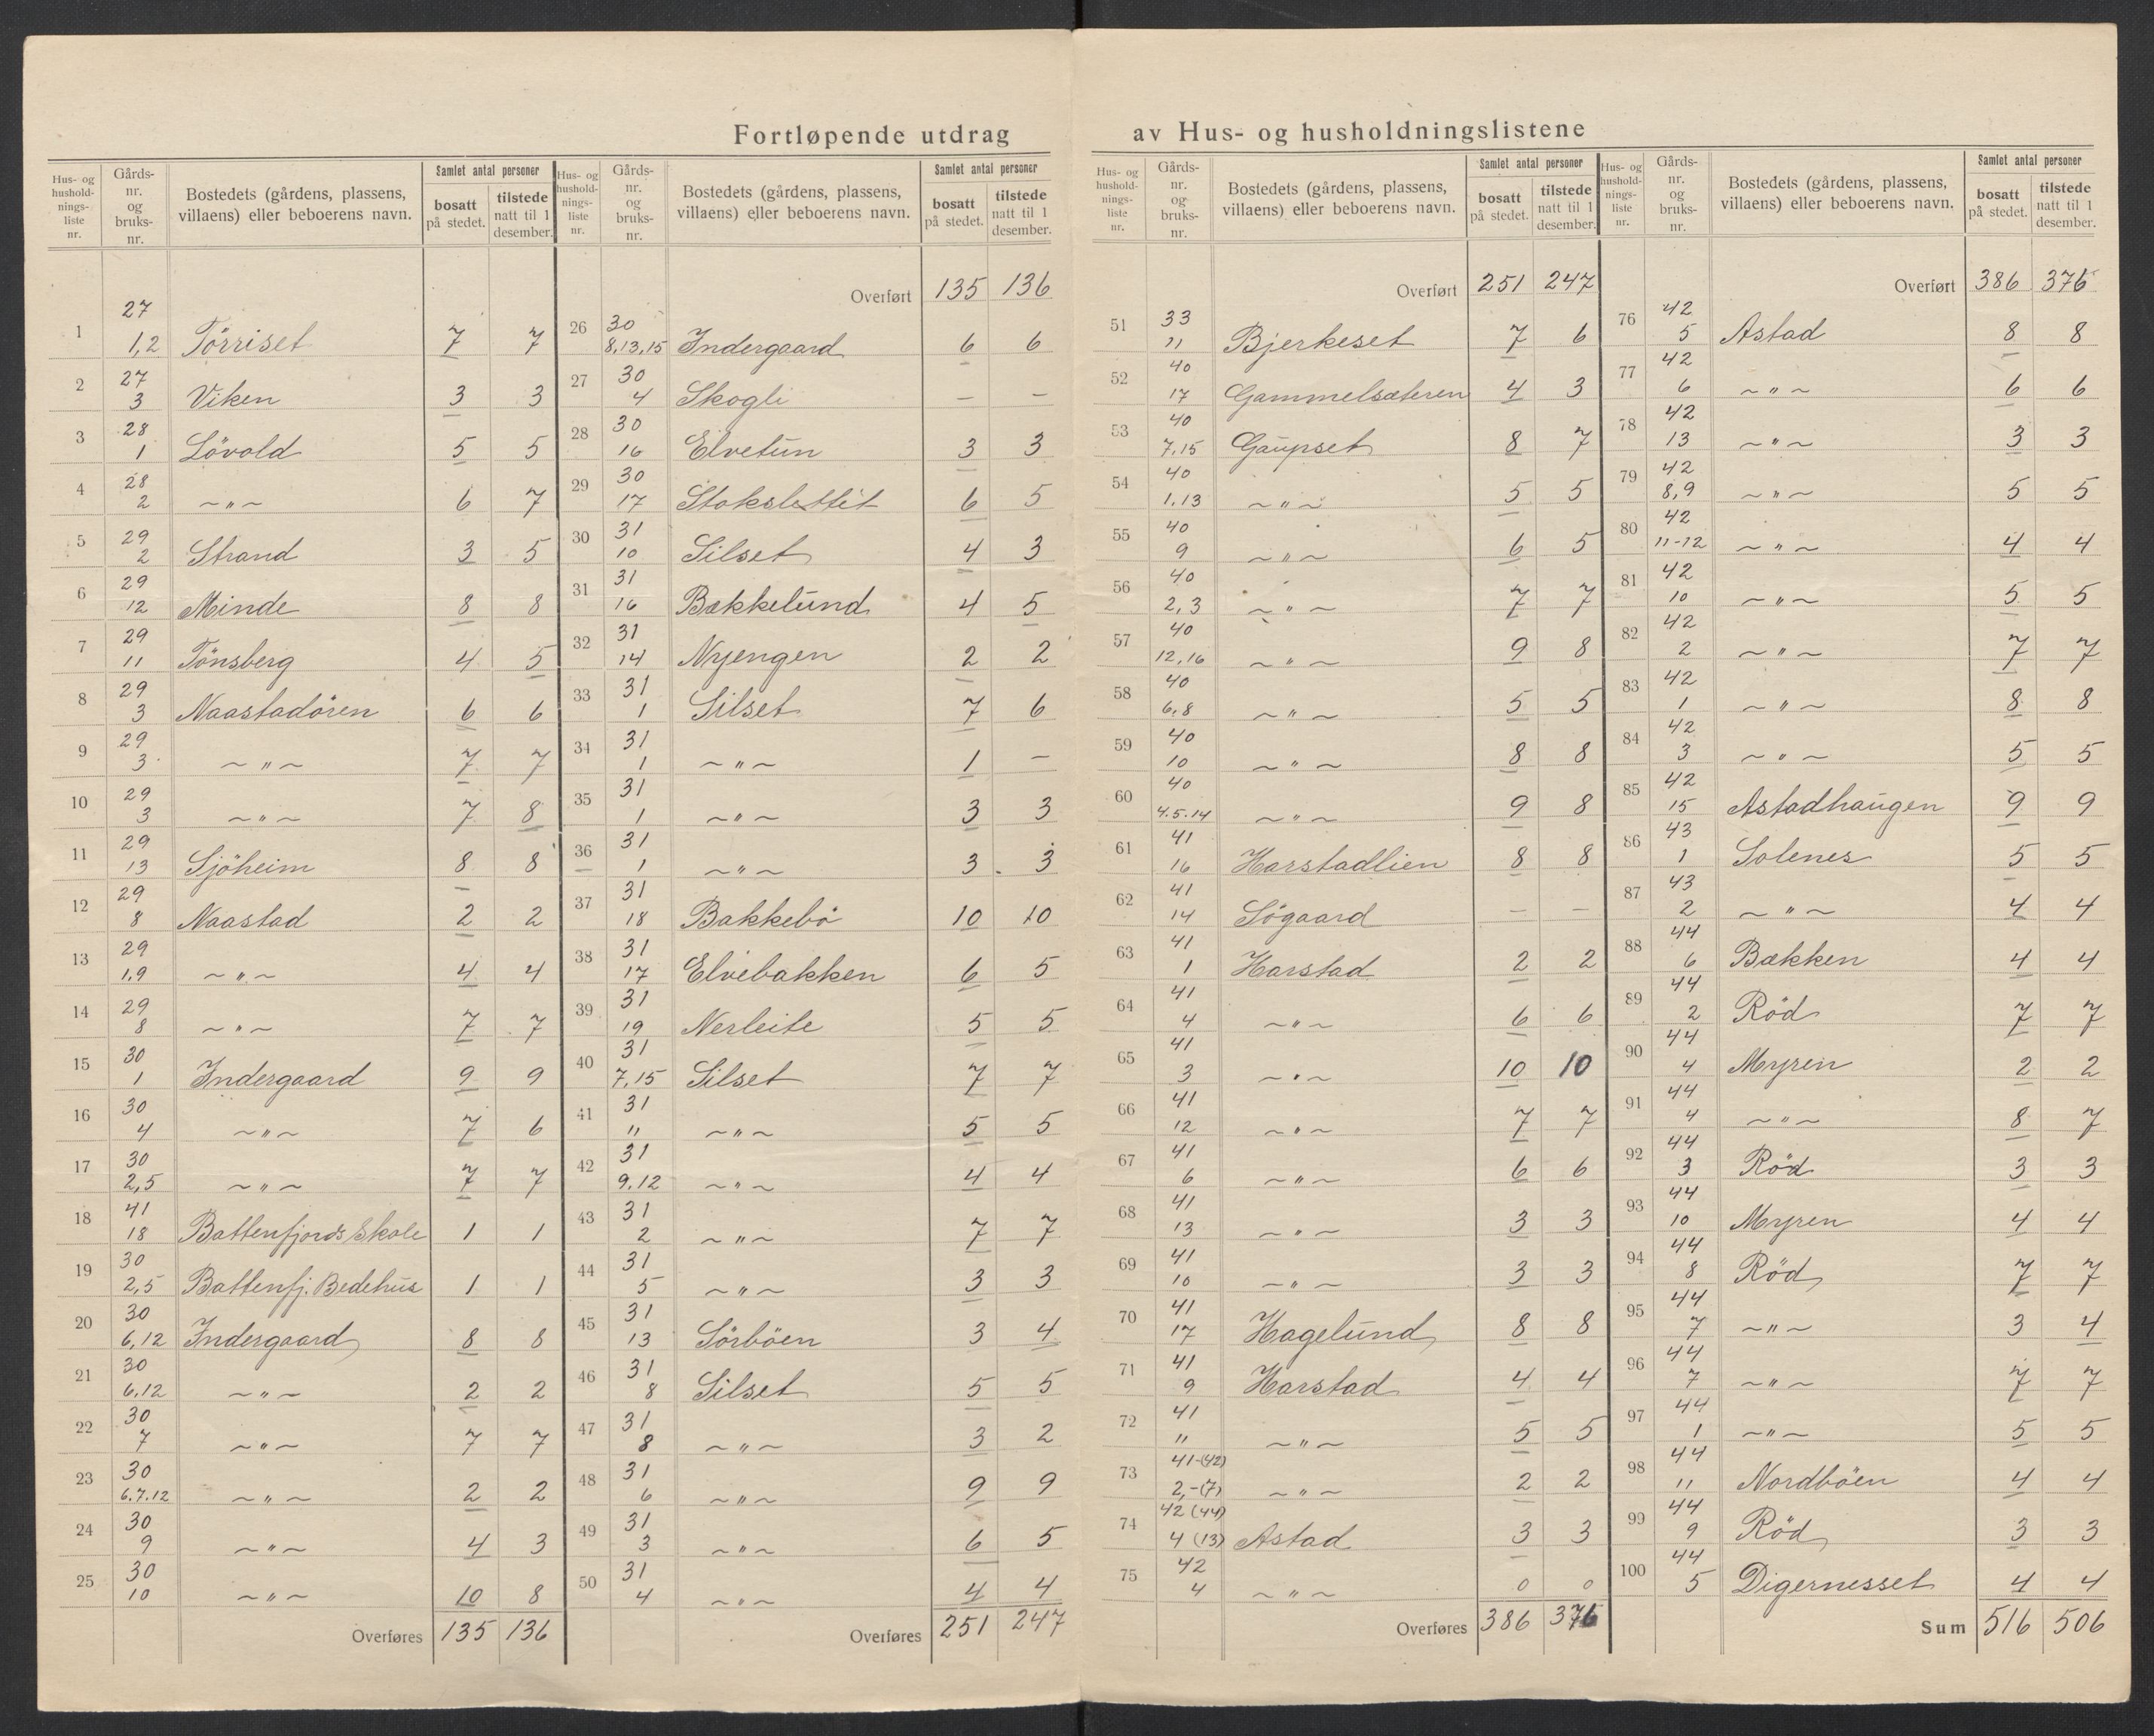 Fortløpende utdrag av Hus- og husholdningslistene
Hus- og hushold-nings-liste nr. | Gårds-nr. og bruks-nr. | Bostedets (gårdens, plassens, villaens) eller beboerens navn. | Samlet antal personer | bosatt på stedet. | tilstede natt til 1 desember.
1 | 27 1,2 | Törriset | 7 | 7
2 | 27 3 | Viken | 3 | 3
3 | 28 1 | Lövold | 5 | 5
4 | 28 2 | ~ " ~ | 6 | 7
5 | 29 2 | Strand | 3 | 5
6 | 29 12 | Minde | 8 | 8
7 | 29 11 | Tönsberg | 4 | 5
8 | 29 3 | Naastadören | 6 | 6
9 | 29 3 | ~ " ~ | 7 | 7
10 | 29 3 | ~ " ~ | 7 | 8
11 | 29 13 | Sjöheim | 8 | 8
12 | 29 8 | Naastad | 2 | 2
13 | 29 1,9 | ~ " ~ | 4 | 4
14 | 29 8 | ~ " ~ | 7 | 7
15 | 30 1 | Indergaard | 9 | 9
16 | 30 4 | ~ " ~ | 7 | 6
17 | 30 2,5 | ~ " ~ | 7 | 7
18 | 41 18 | Battenfjords Skole | 1 | 1
19 | 30 2,5 | Battenfj. Bedehus | 1 | 1
20 | 30 6,12 | Indergaard | 8 | 8
21 | 30 6,12 | ~ " ~ | 2 | 2
22 | 30 7 | ~ " ~ | 7 | 7
23 | 30 6.7.12 | ~ " ~ | 2 | 2
24 | 30 9 | ~ " ~ | 4 | 3
25 | 30 10 | ~ " ~ | 10 | 8
Overføres | 135 | 136
Hus- og hushold-nings-liste nr. | Gårds-nr. og bruks-nr. | Bostedets (gårdens, plassens, villaens) eller beboerens navn. | Samlet antal personer | bosatt på stedet. | tilstede natt til 1 desember.
Overført | 135 | 136
26 | 30 8,13,15 | Indergaard | 6 | 6
27 | 30 4 | Skogli | – | –
28 | 30 16 | Elvetun | 3 | 3
29 | 30 17 | Stokslettet | 6 | 5
30 | 31 10 | Silset | 4 | 3
31 | 31 16 | Bakkelund | 4 | 5
32 | 31 14 | Nyengen | 2 | 2
33 | 31 1 | Silset | 7 | 6
34 | 31 1 | ~ " ~ | 1 | –
35 | 31 1 | ~ " ~ | 3 | 3
36 | 31 1 | ~ " ~ | 3 | 3
37 | 31 18 | Bakkebö | 10 | 10
38 | 31 17 | Elvebakken | 6 | 5
39 | 31 19 | Nerleite | 5 | 5
40 | 31 7,15 | Silset | 7 | 7
41 | 31 11 | ~ " ~ | 5 | 5
42 | 31 9,12 | ~ " ~ | 4 | 4
43 | 31 2 | ~ " ~ | 7 | 7
44 | 31 5 | ~ " ~ | 3 | 3
45 | 31 13 | Sörböen | 3 | 4
46 | 31 8 | Silset | 5 | 5
47 | 31 8 | ~ " ~ | 3 | 2
48 | 31 6 | ~ " ~ | 9 | 9
49 | 31 3 | ~ " ~ | 6 | 5
50 | 31 4 | ~ " ~ | 4 | 4
Overføres | 251 | 247
Hus- og hushold-nings-liste nr. | Gårds-nr. og bruks-nr. | Bostedets (gårdens, plassens, villaens) eller beboerens navn. | Samlet antal personer | bosatt på stedet. | tilstede natt til 1 desember.
Overført | 251 | 247
51 | 33 11 | Bjerkeset | 7 | 6
52 | 40 17 | Gammelsæteren | 4 | 3
53 | 40 7,15 | Gaupset | 8 | 7
54 | 40 1.13 | ~ " ~ | 5 | 5
55 | 40 9 | ~ " ~ | 6 | 5
56 | 40 2,3 | ~ " ~ | 7 | 7
57 | 40 12,16 | ~ " ~ | 9 | 8
58 | 40 6,8 | ~ " ~ | 5 | 5
59 | 40 10 | ~ " ~ | 8 | 8
60 | 40 4.5.14 | ~ " ~ | 9 | 8
61 | 41 16 | Harstadlien | 8 | 8
62 | 41 14 | Sögaard | – | –
63 | 41 1 | Harstad | 2 | 2
64 | 41 4 | ~ " ~ | 6 | 6
65 | 41 3 | ~ " ~ | 10 | 10
66 | 41 12 | ~ " ~ | 7 | 7
67 | 41 6 | ~ " ~ | 6 | 6
68 | 41 13 | ~ " ~ | 3 | 3
69 | 41 10 | ~ " ~ | 3 | 3
70 | 41 17 | Hagelund | 8 | 8
71 | 41 9 | Harstad | 4 | 4
72 | 41 11 | ~ " ~ | 5 | 5
73 | 41-(42) 2,-(7) | ~ " ~ | 2 | 2
74 | 42 (44) 4 (13) | Astad | 3 | 3
75 | 42 4 | ~ " ~ | 0 | 0
Overføres | 386 | 376
Hus- og hushold-nings-liste nr. | Gårds-nr. og bruks-nr. | Bostedets (gårdens, plassens, villaens) eller beboerens navn. | Samlet antal personer | bosatt på stedet. | tilstede natt til 1 desember.
Overført | 386 | 376
76 | 42 5 | Astad | 8 | 8
77 | 42 6 | ~ " ~ | 6 | 6
78 | 42 13 | ~ " ~ | 3 | 3
79 | 42 8,9 | ~ " ~ | 5 | 5
80 | 42 11-12 | ~ " ~ | 4 | 4
81 | 42 10 | ~ " ~ | 5 | 5
82 | 42 2 | ~ " ~ | 7 | 7
83 | 42 1 | ~ " ~ | 8 | 8
84 | 42 3 | ~ " ~ | 5 | 5
85 | 42 15 | Astadhaugen | 9 | 9
86 | 43 1 | Solenes | 5 | 5
87 | 43 2 | ~ " ~ | 4 | 4
88 | 44 6 | Bækken | 4 | 4
89 | 44 2 | Röd | 7 | 7
90 | 44 4 | Myren | 2 | 2
91 | 44 4 | ~ " ~ | 8 | 7
92 | 44 3 | Röd | 3 | 3
93 | 44 10 | Myren | 4 | 4
94 | 44 8 | Röd | 7 | 7
95 | 44 7 | ~ " ~ | 3 | 4
96 | 44 7 | ~ " ~ | 7 | 7
97 | 44 1 | ~ " ~ | 5 | 5
98 | 44 11 | Nordböen | 4 | 4
99 | 44 9 | Röd | 3 | 3
100 | 44 5 | Digernesset | 4 | 4
Sum | 516 | 506